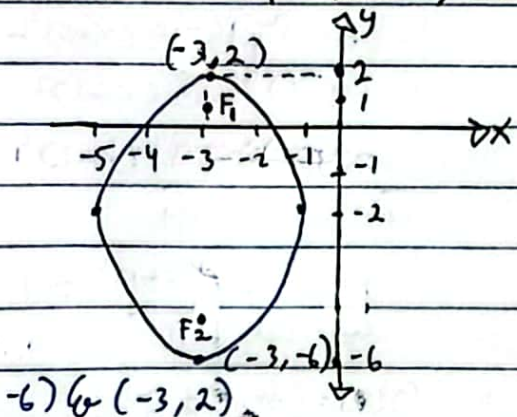 y
(-3, 2)
2
F1
1
x
-5 -4 -3 -2 -1
-1
-2
F2
(-3, -6) -6
-6) & (-3, 2)